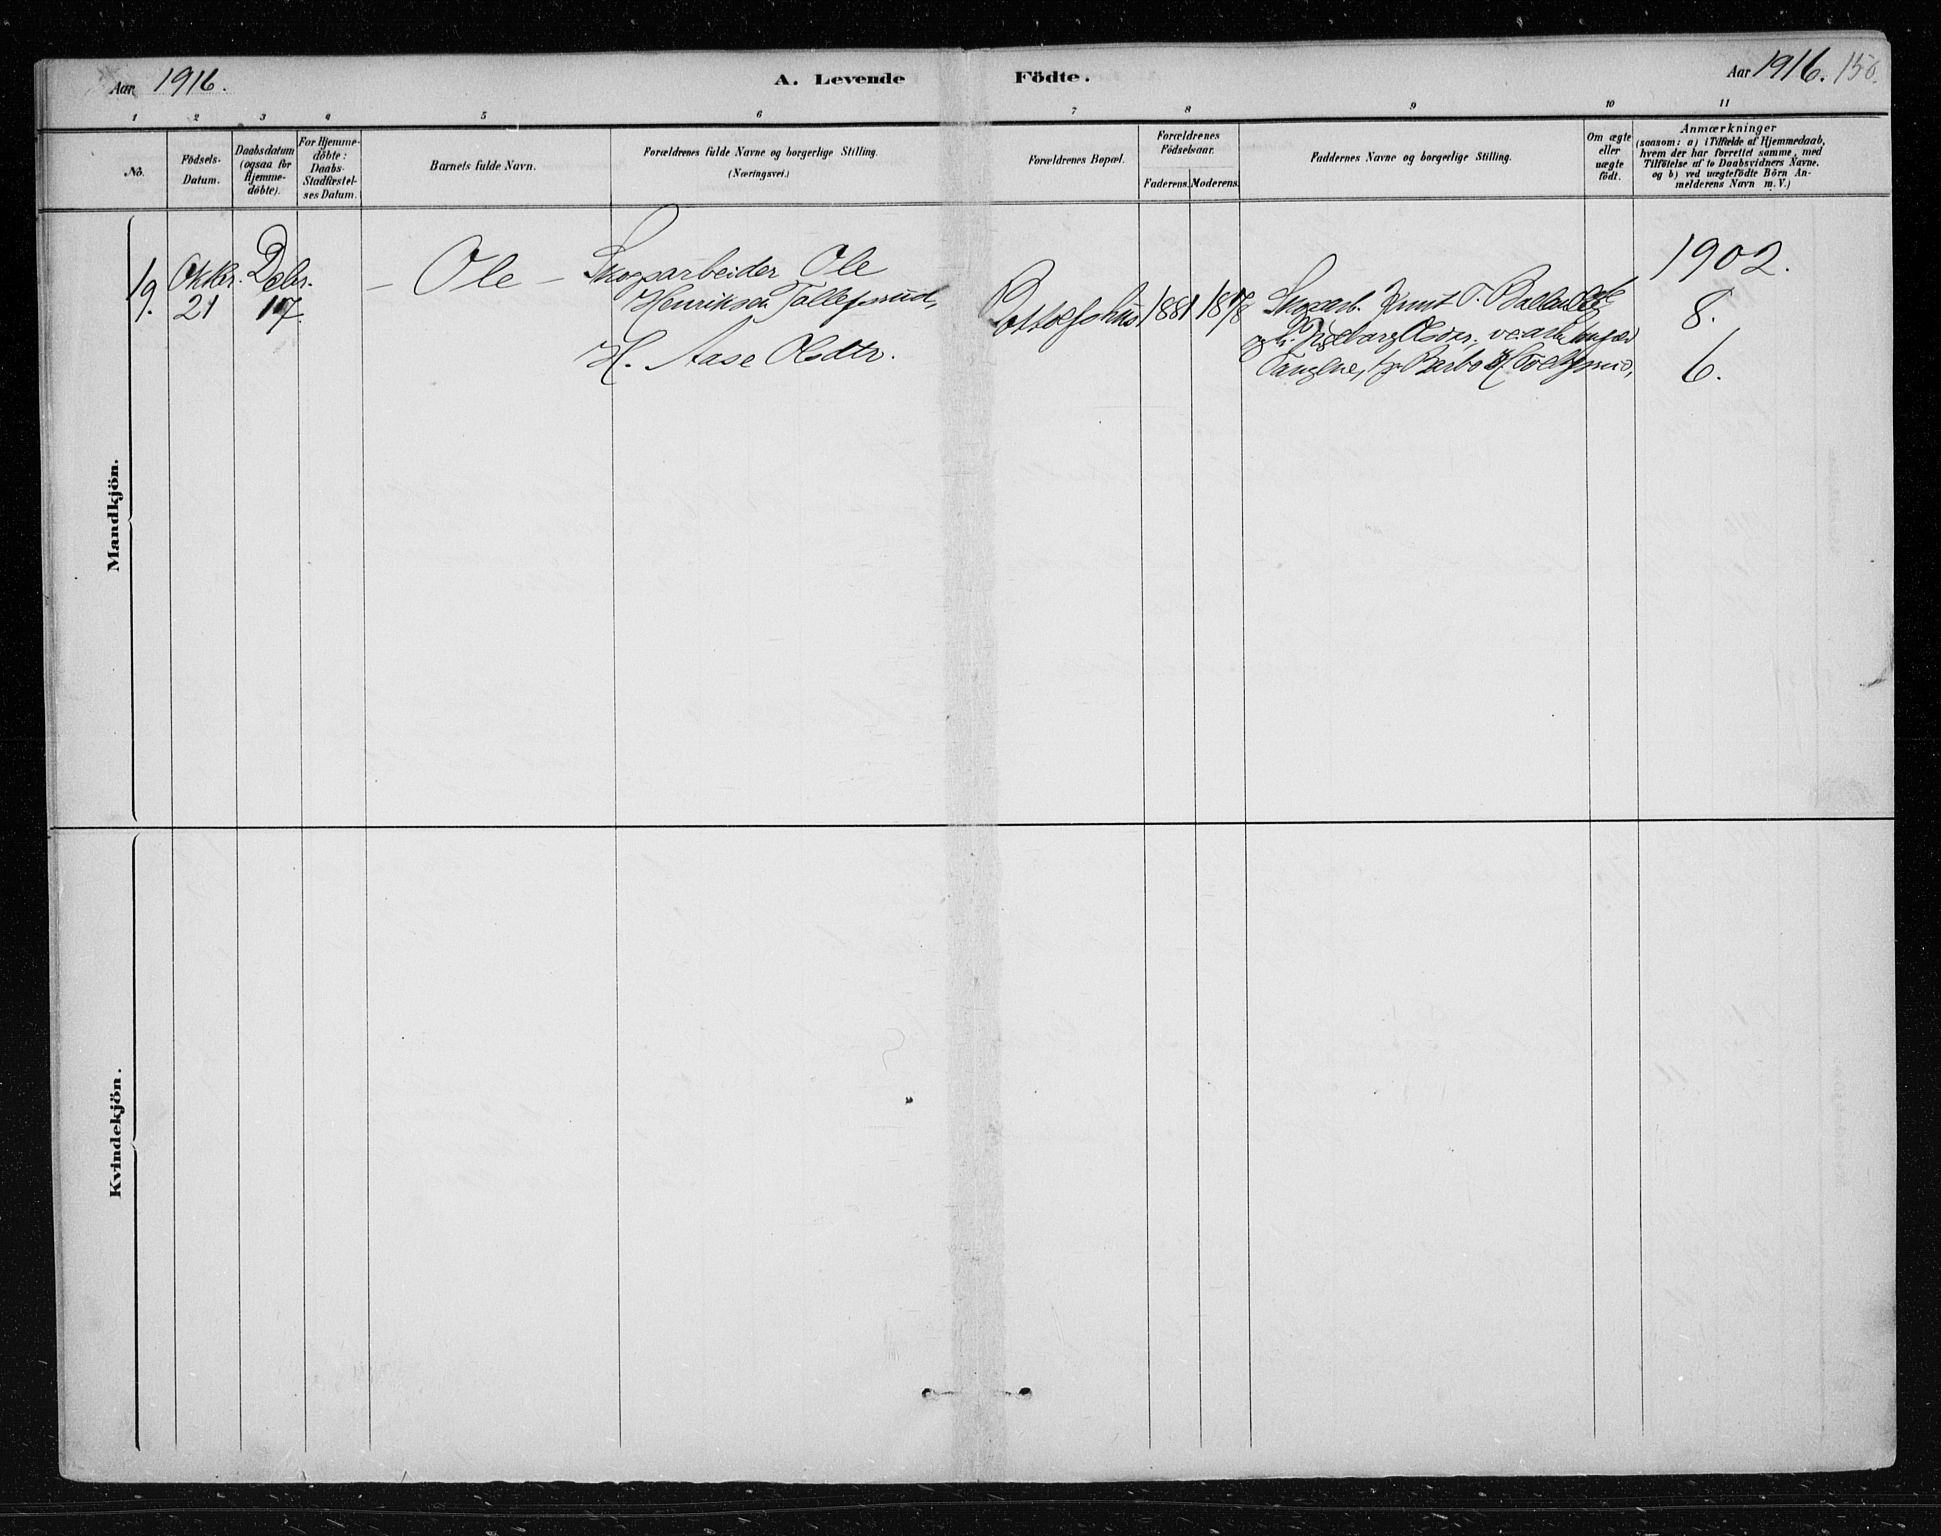 Aar 1916.
A. Levende Födte.
Aar 1916. 150.
1 2 3 4 5 6 7 8 9 10 11
No.
Födsels-
Datum.
Daabsdatum
(ogsaa for
Hjemme-
döbte).
For Hjemme-
döbte:
Daabs-
Stadfæstel-
ses Datum.
Barnets fulde Navn.
Forældrenes fulde Navne og borgerlige Stilling.
(Næringsvei.)
Forældrenes Bopæl.
Forældrenes
Födselsaar.
Faderens. Moderens.
Faddernes Navne og borgerlige Stilling.
Om ægte
eller
uægte
födt.
Anmærkninger
(saasom: a) i Tilfælde af Hjemmedaab,
hvem der har forrettet samme, med
Tilföielse af to Daabsvidners Navne.
og b) ved uægtefödte Börn An-
melderens Navn m. V.)
Mandkjön.
19.
Oktbr.
21
Debr.
17.
- Ole -
Skogsarbeider Ole
Henriksen Tollefsrud,
H. Aase Olsdtr.
1881 1878
Skogarb. Knut
og h. Ingeborg Olsdtr.,
1902.
8.
6.
Kvindekjön.